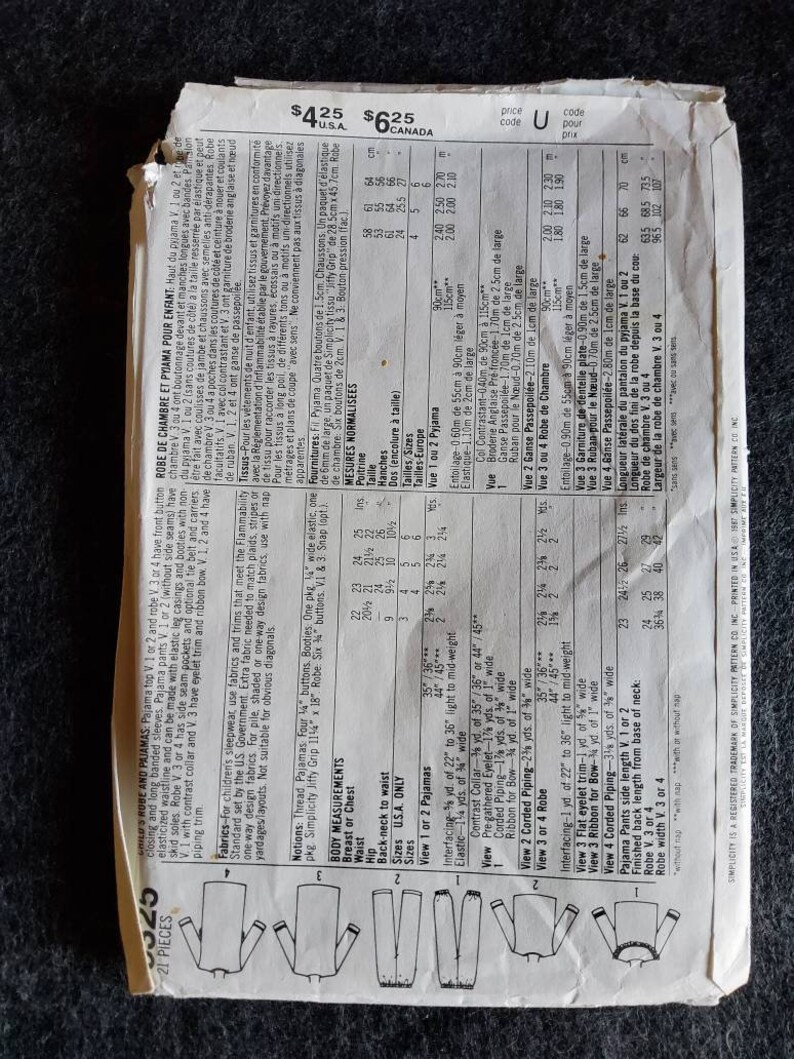 $4.25 U.S.A. $6.25 CANADA price code U code pour prix
21 PIECES
CHILD'S ROBE AND PAJAMAS: Pajama top V. 1 or 2 and robe V. 3 or 4 have front button
closing and long banded sleeves. Pajama pants V. 1 or 2 (without side seams) have
elasticized waistline and can be made with elastic leg casings and booties with non-
skid soles. Robe V. 3 or 4 has side seam pockets and optional tie belt and carriers.
V. 1 with contrast collar and V. 3 have eyelet trim and ribbon bow. V. 1, 2 and 4 have
piping trim.
Fabrics–For children's sleepwear, use fabrics and trims that meet the Flammability
Standard set by the U.S. Government. Extra fabric needed to match plaids, stripes or
one-way design fabrics. For pile, shaded or one-way design fabrics, use with nap
yardages/layouts. Not suitable for obvious diagonals.
Notions: Thread, Pajamas: Four ¼" buttons. Booties: One pkg. ¼" wide elastic, one
pkg. Simplicity Jiffy Grip 11¼" x 18". Robe: Six ¾" buttons. V.1 & 3: Snap (opt.).
BODY MEASUREMENTS
Breast or Chest 22 23 24 25 Ins.
Waist 20½ 21 21½ 22 "
Hip — 24 25 26 "
Back-neck to waist 9 9½ 10 10½ "
Sizes U.S.A. ONLY 3 4 5 6
Sizes 4 5 6
View 1 or 2 Pajamas
35"/36"*** 2⅝ 2⅝ 2¾ 3 Yds.
44"/45"*** 2 2⅛ 2¼ 2¼
Interfacing–⅝ yd. of 22" to 36" light to mid-weight
Elastic–1¼ yds. of ¾" wide
Contrast Collar–⅜ yd. of 35"/36" or 44"/45"**
View 1 Pre-gathered Eyelet–1⅞ yds. of 1" wide
Corded Piping–1⅞ yds. of ⅜" wide
Ribbon for Bow–¾ yd. of 1" wide
View 2 Corded Piping–2⅜ yds. of ⅜" wide
View 3 or 4 Robe
35"/36"*** 2⅛ 2¼ 2⅜ 2½ Yds.
44"/45"*** 1⅝ 2 2 2⅛
Interfacing–1 yd. of 22" to 36" light to mid-weight
View 3 Flat eyelet trim–1 yd. of ⅝" wide
View 3 Ribbon for Bow–¾ yd. of 1" wide
View 4 Corded Piping–3⅛ yds. of ⅜" wide
Pajama Pants side length V. 1 or 2 23 24½ 26 27½ Ins
Finished back length from base of neck:
Robe V. 3 or 4 24 25 27 29 "
Robe width V. 3 or 4 36¾ 38 40 42 "
*without nap **with nap ***with or without nap
ROBE DE CHAMBRE ET PYJAMA POUR ENFANT: Haut du pyjama V. 1 ou 2 et robe de
chambre V. 3 ou 4 ont boutonnage devant et manches longues avec bandes. Pantalon
du pyjama V. 1 ou 2 (sans coutures de côté) a la taille resserrée par élastique et peut
être fait avec coulisses de jambe et chaussons avec semelles anti-dérapantes. Robe
de chambre V. 3 ou 4 a poches dans les coutures de côté et ceinture à nouer et coulants
facultatifs. V. 1 avec col contrastant et V. 3 ont garniture de broderie anglaise et nœud
de ruban. V. 1, 2 et 4 ont ganse de passepoilée.
Tissus–Pour les vêtements de nuit d'enfant, utilisez tissus et garnitures en conformité
avec la Réglementation d'Inflammabilité établie par le gouvernement. Prévoyez davantage
de tissu pour raccorder les tissus à rayures, écossais ou à motifs uni-directionnels.
Pour les tissus à long poil, de différents tons ou à motifs uni-directionnels utilisez
métrages et plans de coupe "avec sens". Ne conviennent pas aux tissus à diagonales
apparentes.
Fournitures: Fil Pyjama: Quatre boutons de 1.5cm. Chaussons: Un paquet d'élastique
de 6mm de large, un paquet de Simplicity tissu "Jiffy Grip" de 28.5cm x 45.7cm. Robe
de chambre: Six boutons de 2cm. V. 1 & 3: Bouton-pression (fac.).
MESURES NORMALISEES
Poitrine 58 61 64 cm
Taille 53 55 56 "
Hanches 61 64 66 "
Dos (encolure à taille) 24 25.5 27 "
Tailles/Sizes 4 5 6
Tailles-Europe 6
Vue 1 ou 2 Pyjama
90cm** 2.40 2.50 2.70 m
115cm** 2.00 2.00 2.10 "
Entoilage–0.60m de 55cm à 90cm léger à moyen
Elastique–1.10m de 2cm de large
Col Contrastant–0.40m de 90cm à 115cm**
Vue 1 Broderie Anglaise Pré-froncée–1.70m de 2.5cm de large
Ganse Passepoilée–1.70m de 1cm de large
Ruban pour le Nœud–0.70m de 2.5cm de large
Vue 2 Ganse Passepoilée–2.10m de 1cm de large
Vue 3 ou 4 Robe de Chambre
90cm** 2.00 2.10 2.30 m
115cm** 1.80 1.80 1.90 "
Entoilage–0.90m de 55cm à 90cm léger à moyen
Vue 3 Garniture de dentelle plate–0.90m de 1.5cm de large
Vue 3 Ruban pour le Nœud–0.70m de 2.5cm de large
Vue 4 Ganse Passepoilée–2.80m de 1cm de large
Longueur latérale du pantalon du pyjama V. 1 ou 2 62 66 70 cm
Longueur du dos fini de la robe depuis la base du cou:
Robe de chambre V. 3 ou 4 63.5 68.5 73.5 "
Largeur de la robe de chambre V. 3 ou 4 96.5 102 107 "
*sans sens **avec sens ***avec ou sans sens
SIMPLICITY IS A REGISTERED TRADEMARK OF SIMPLICITY PATTERN CO. INC. PRINTED IN U.S.A. © 1987 SIMPLICITY PATTERN CO. INC.
4
3
2
1
2
1